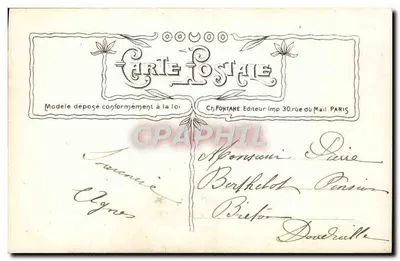 CARTE POSTALE
Modele déposé conformément à la loi
Ch. FONTANE Editeur-Imp 30, rue du Mail. PARIS
Souvenir
Agnes
Monsieur Pierre
Berthelot Pension
Breton